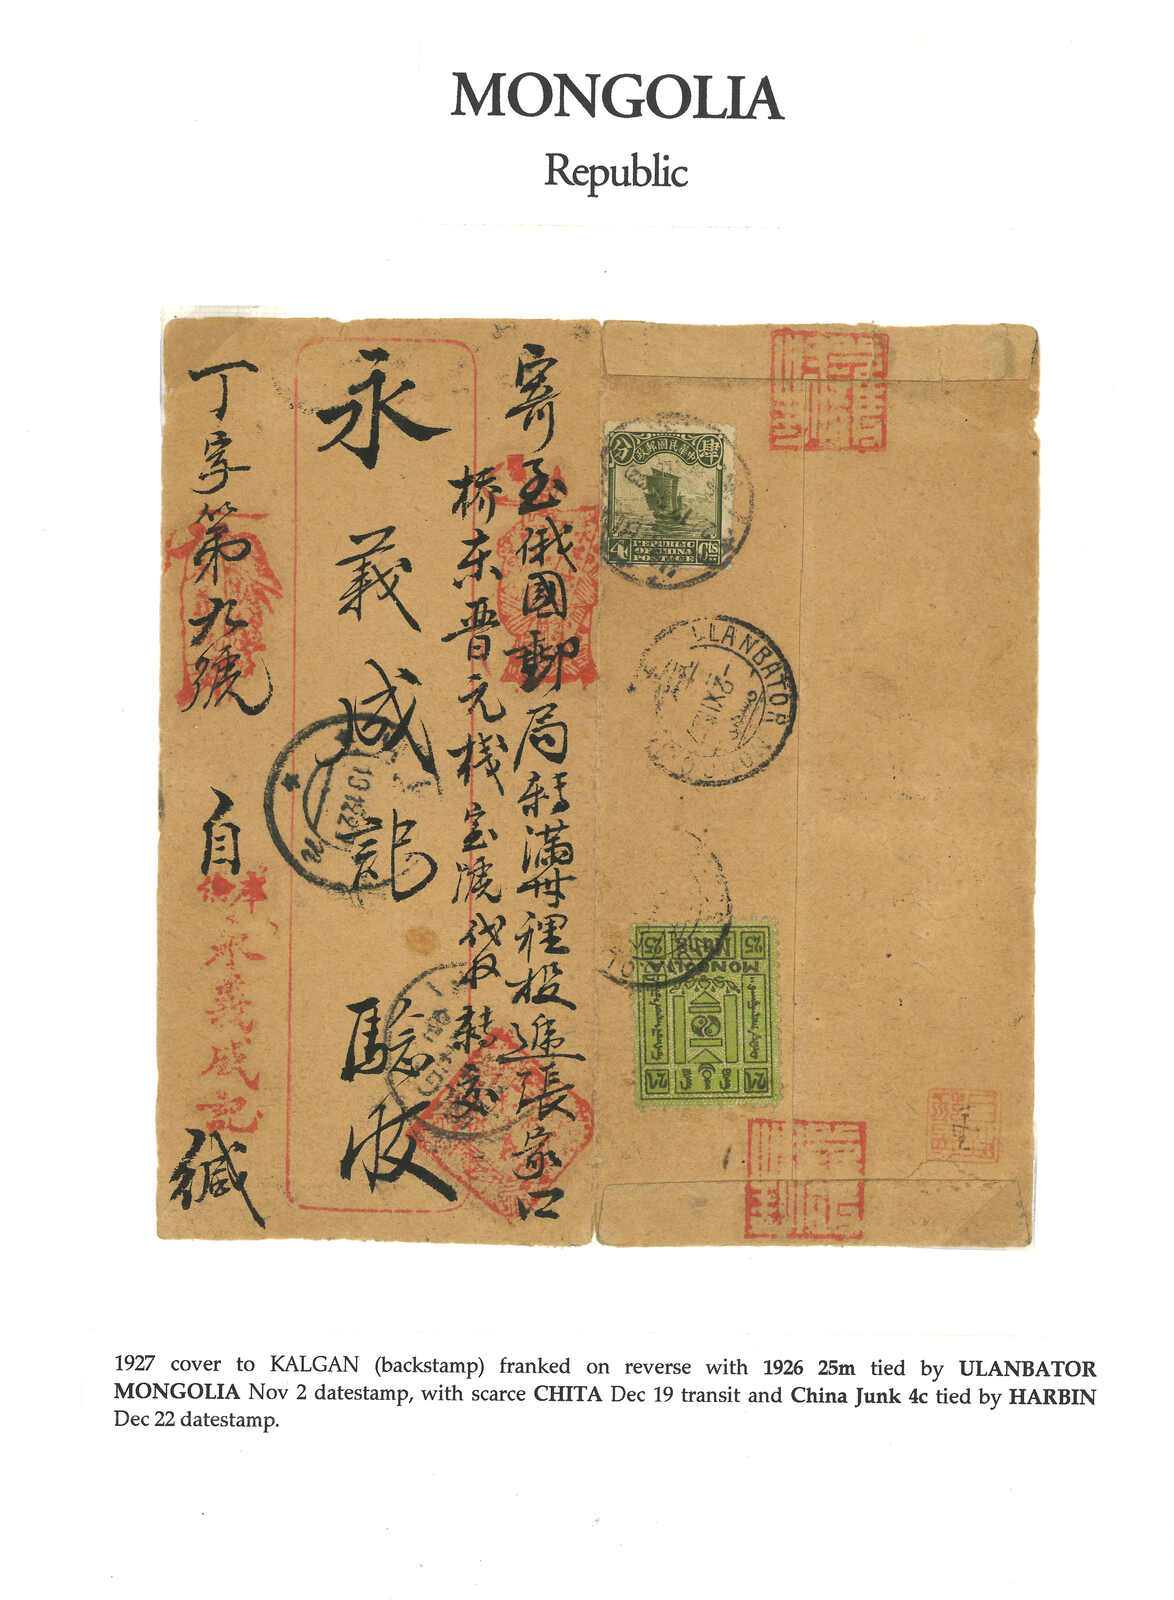 MONGOLIA
Republic
寄至俄國郵局轉滿州裡投遞張家口
桥东晋元栈宝號代收轉交
永義成記
丁字第九號
自
永義成記
緘
中華民國郵政
肆
分
4
Cts
REPUBLIC
OF CHINA
POSTAGE
ULANBATOR
25
25
MONGOLIA
1927 cover to KALGAN (backstamp) franked on reverse with 1926 25m tied by ULANBATOR
MONGOLIA Nov 2 datestamp, with scarce CHITA Dec 19 transit and China Junk 4c tied by HARBIN
Dec 22 datestamp.